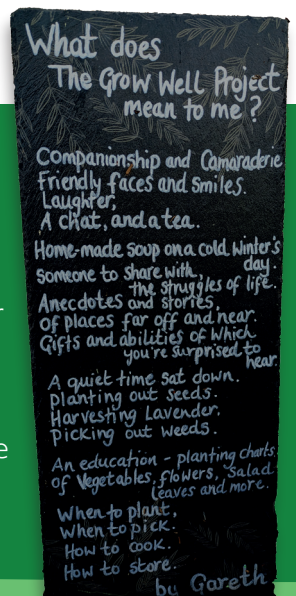 What does
The Grow Well Project
mean to me?
Companionship and Camaraderie
Friendly faces and smiles.
Laughter,
A chat, and a tea.
Home-made soup on a cold winter's
day.
Someone to share with,
the struggles of life.
Anecdotes and stories,
of places far off and near.
Gifts and abilities of which
you're surprised to
hear.
A quiet time sat down.
Planting out seeds.
Harvesting Lavender,
Picking out weeds.
An education - planting charts,
of Vegetables, flowers, Salad
leaves and more.
When to plant,
When to pick.
How to cook.
How to store.
by Gareth